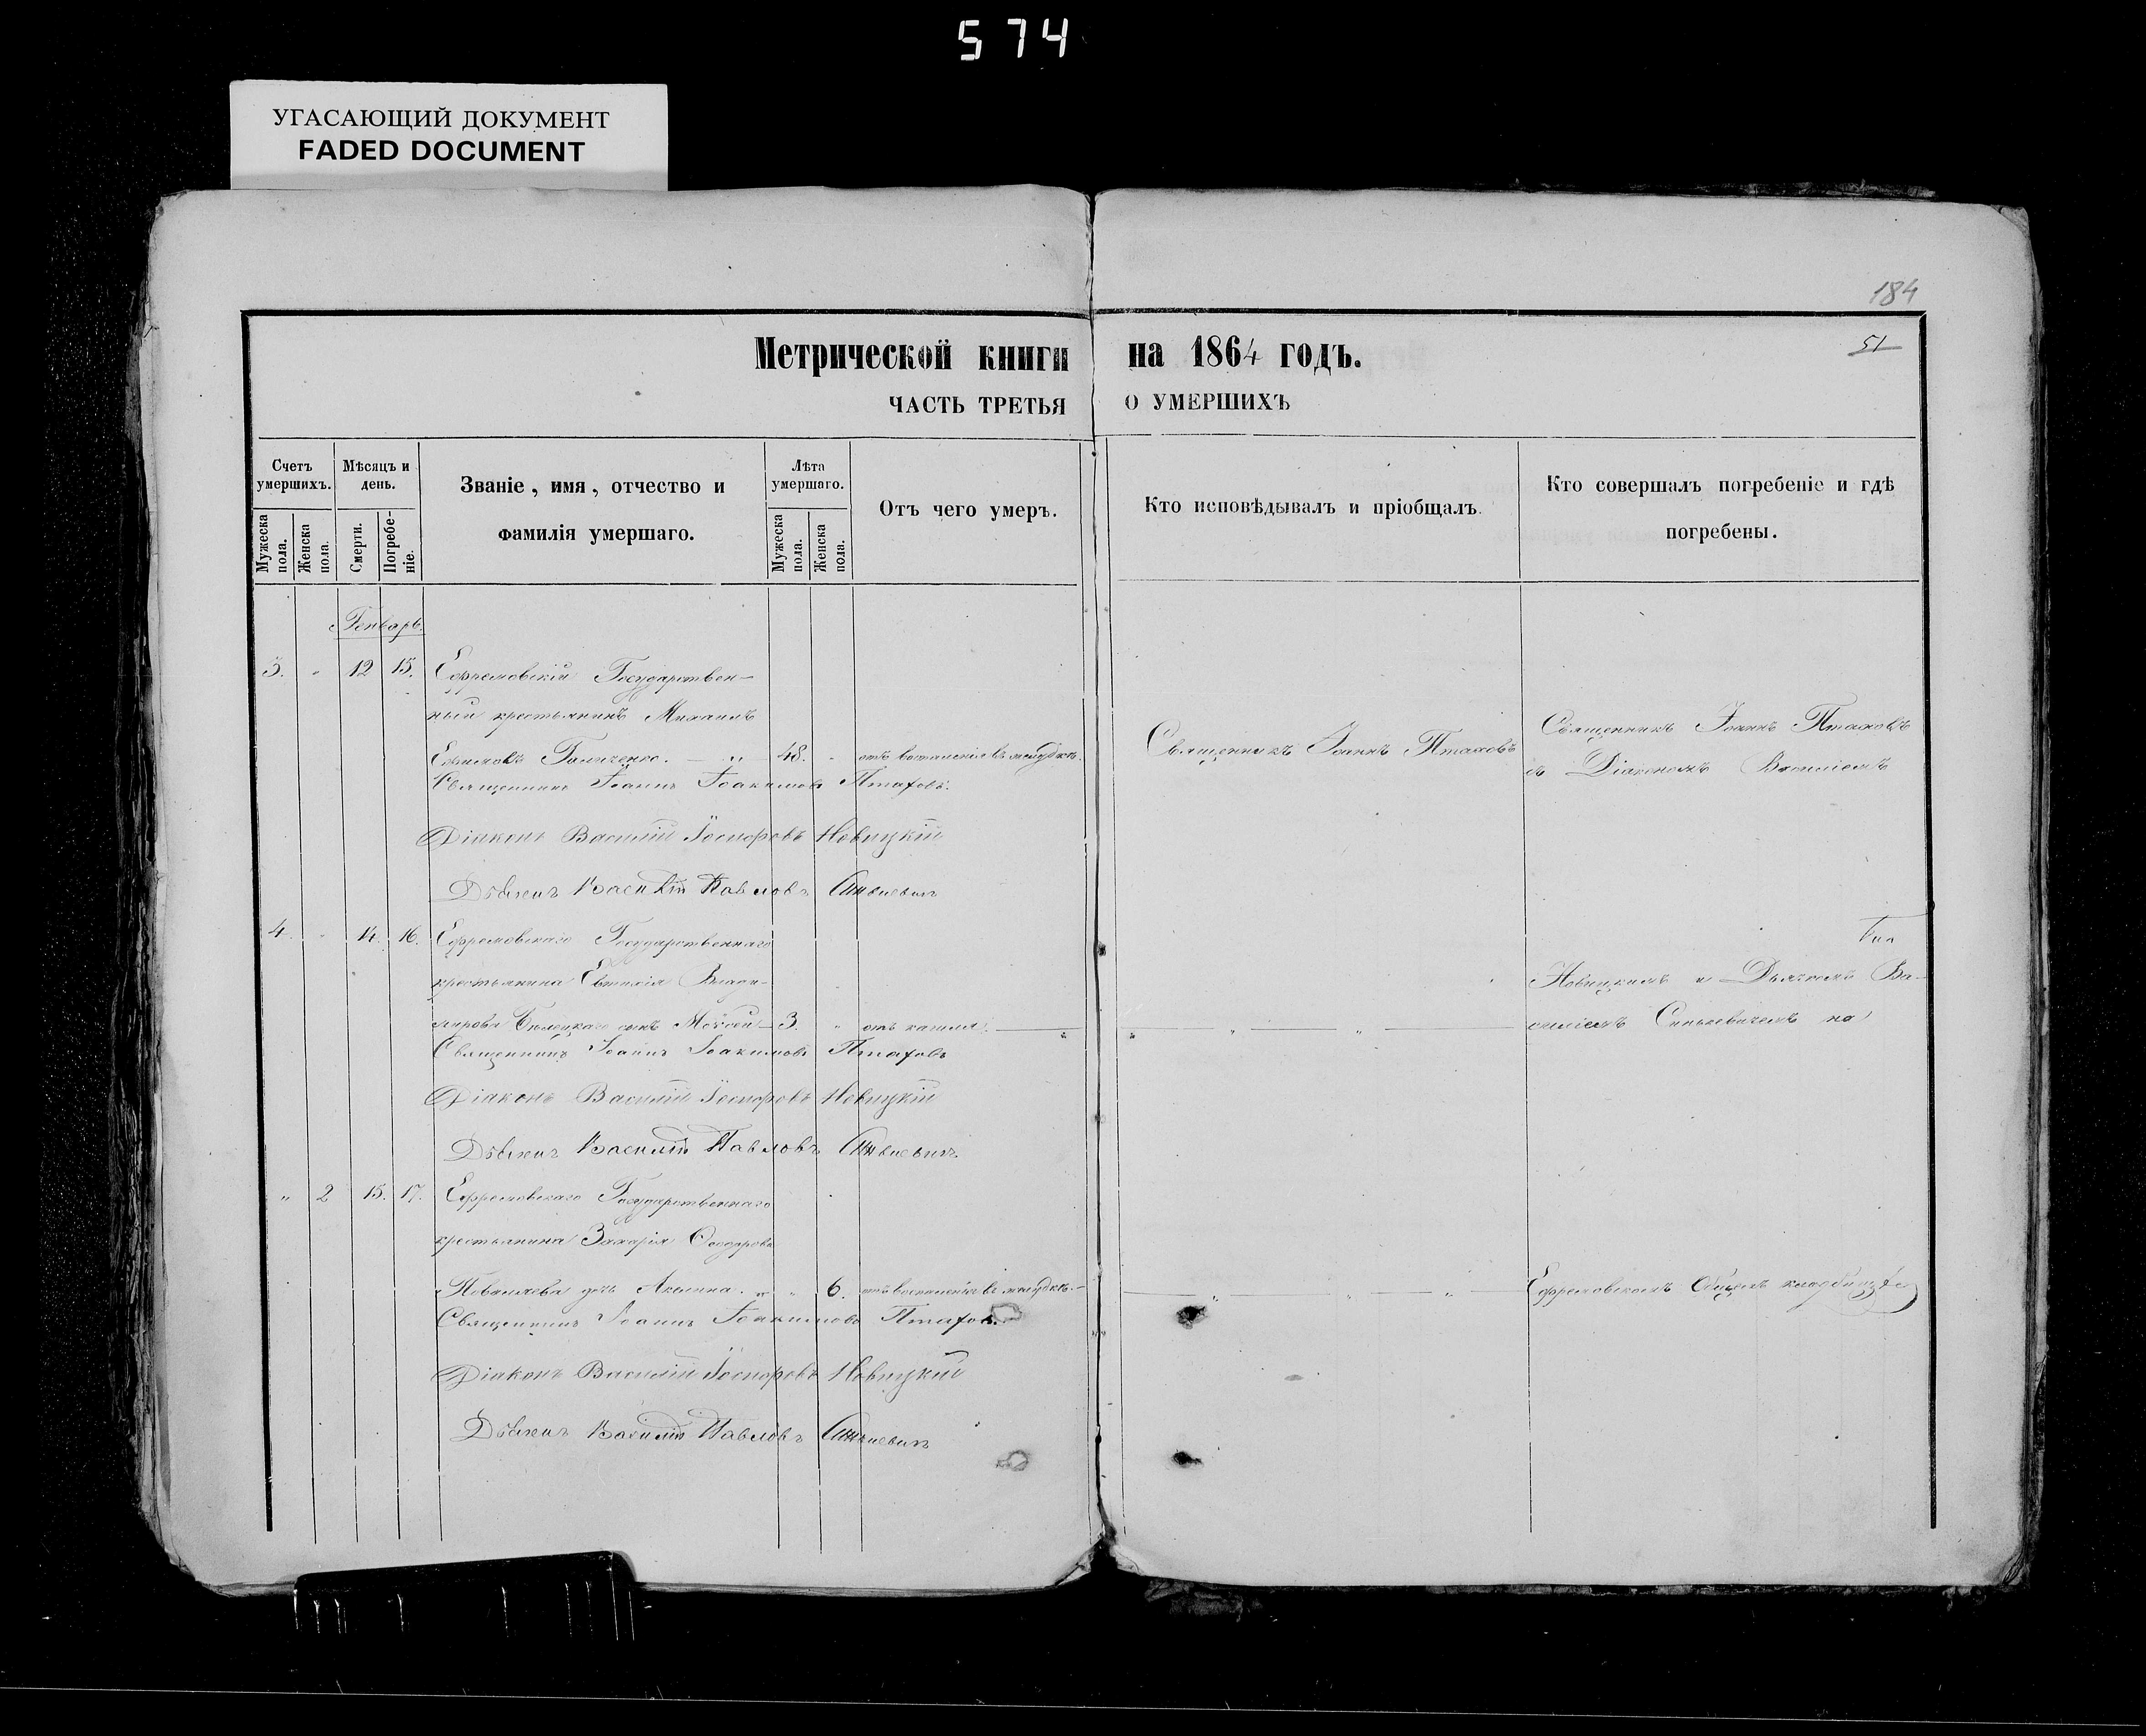 574
УГАСАЮЩИЙ ДОКУМЕНТ
FADED DOCUMENT
184
51
Метрической книги на 1864 годъ.
ЧАСТЬ ТРЕТЬЯ О УМЕРШИХЪ
Счетъ умершихъ.
Мужеска пола.
Женска пола.
Мѣсяцъ и день.
Смерти.
Погребе-ніе.
Званіе, имя, отчество и
фамилія умершаго.
Лѣта умершаго.
Мужеска пола.
Женска пола.
Отъ чего умеръ.
Кто исповѣдывалъ и пріобщалъ.
Кто совершалъ погребеніе и гдѣ
погребены.
Генварь
3. " 12 15. Ефремовскій Государствен-
ный крестьянинъ Михаилъ
Ефимовъ 48. " отъ воспаленія въ желудкѣ.
Священникъ Іоаннъ Птаховъ
Священникъ Іоаннъ Птаховъ
съ Діакономъ Василіемъ
Священникъ Іоаннъ Іоакимовъ Птаховъ.
Діаконъ Василій Іосифовъ Новицкій
Дьячекъ Василій Павловъ Синькевичъ
4. " 14. 16. Ефремовскаго Государственнаго
крестьянина Евтихія Влади-
мірова сынъ Моѵсей 3. " отъ кашля.
Новицкимъ и Дьячкомъ Ва-
силіемъ Синькевичемъ на
Священникъ Іоаннъ Іоакимовъ Птаховъ
Діаконъ Василій Іосифовъ Новицкій
Дьячекъ Василій Павловъ Синькевичъ
" 2 15. 17. Ефремовскаго Государственнаго
крестьянина Захарія Ѳеодорова
дочь Акилина. " 6. отъ воспаленія въ желудкѣ.
Ефремовскомъ Общемъ кладбищѣ
Священникъ Іоаннъ Іоакимовъ Птаховъ.
Діаконъ Василій Іосифовъ Новицкій
Дьячекъ Василій Павловъ Синькевичъ